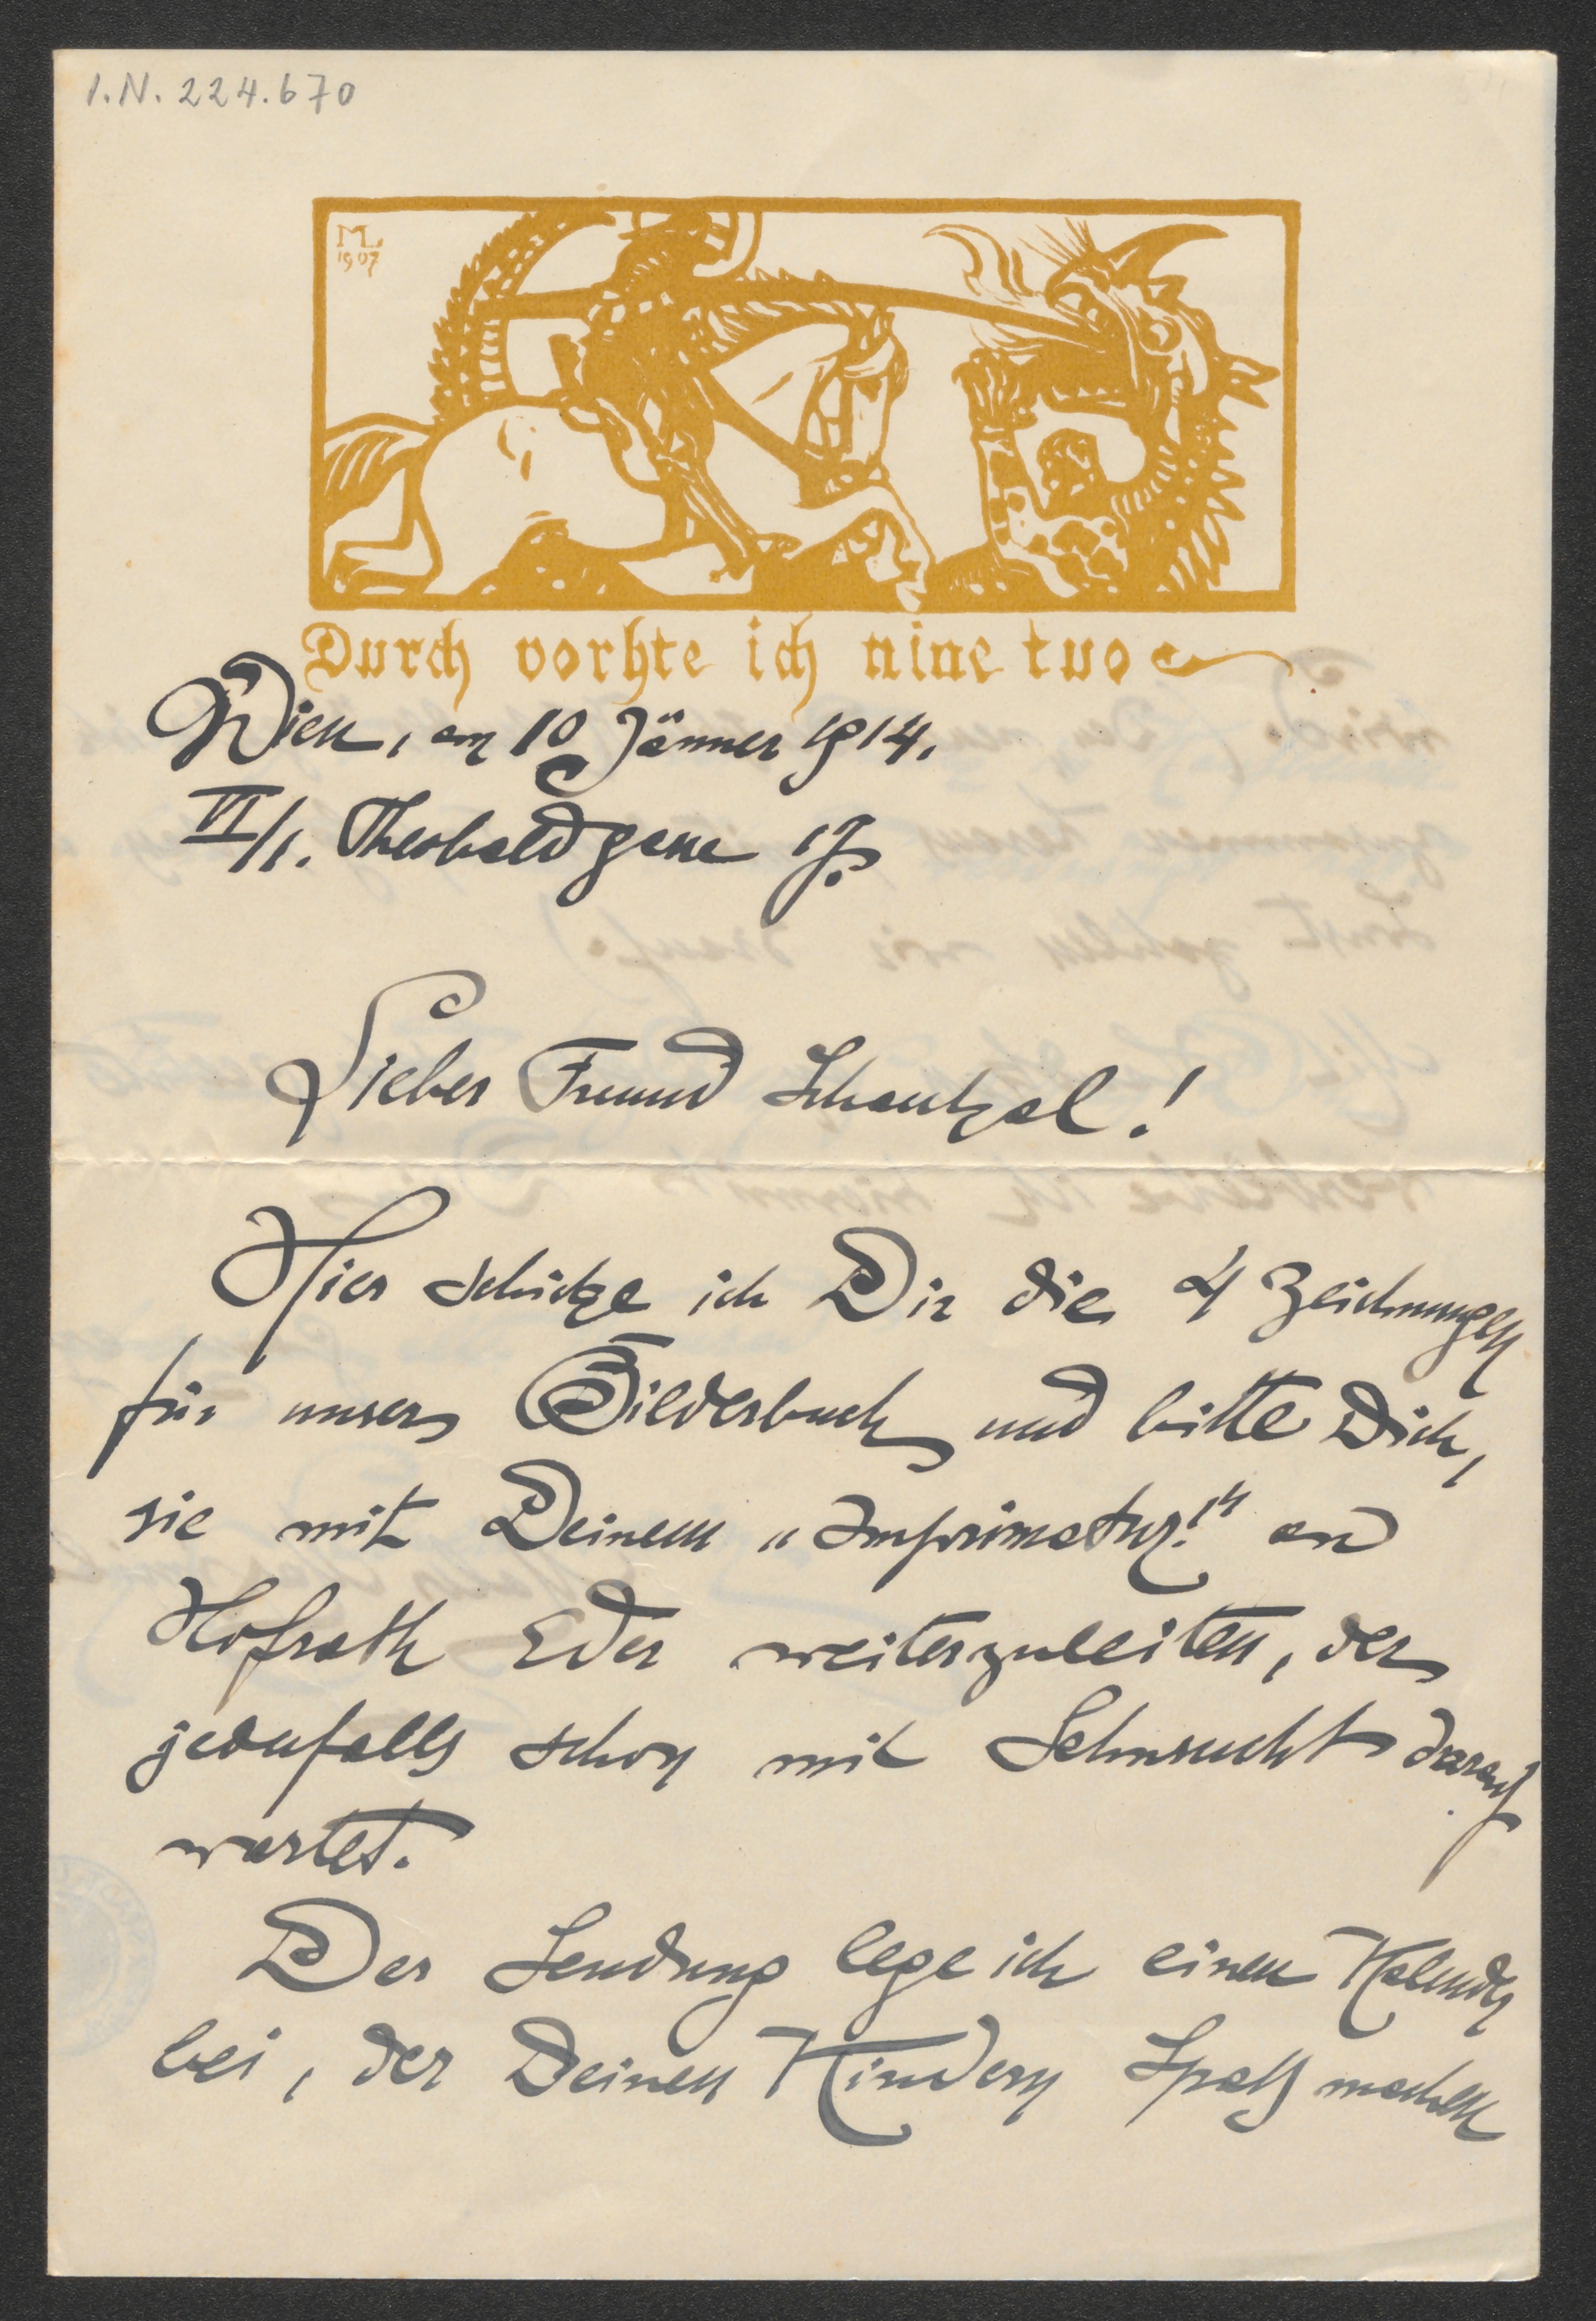 I.N. 224.670
ML.
1907
Durch vorhte ich nine tuo
Wien, am 10 Jänner 1914.
VI/1. Theobaldgasse 17.
Lieber Freund Schaukal!
Hier schicke ich Dir die 4 Zeichnungen
für unser Bilderbuch und bitte Dich,
sie mit Deinem „Imprimatur!" an
Hofrath Eder weiterzuleiten, der
jedenfalls schon mit Sehnsucht darauf
wartet.
Der Sendung lege ich einen Kalender
bei, der Deinen Kindern Spaß machen